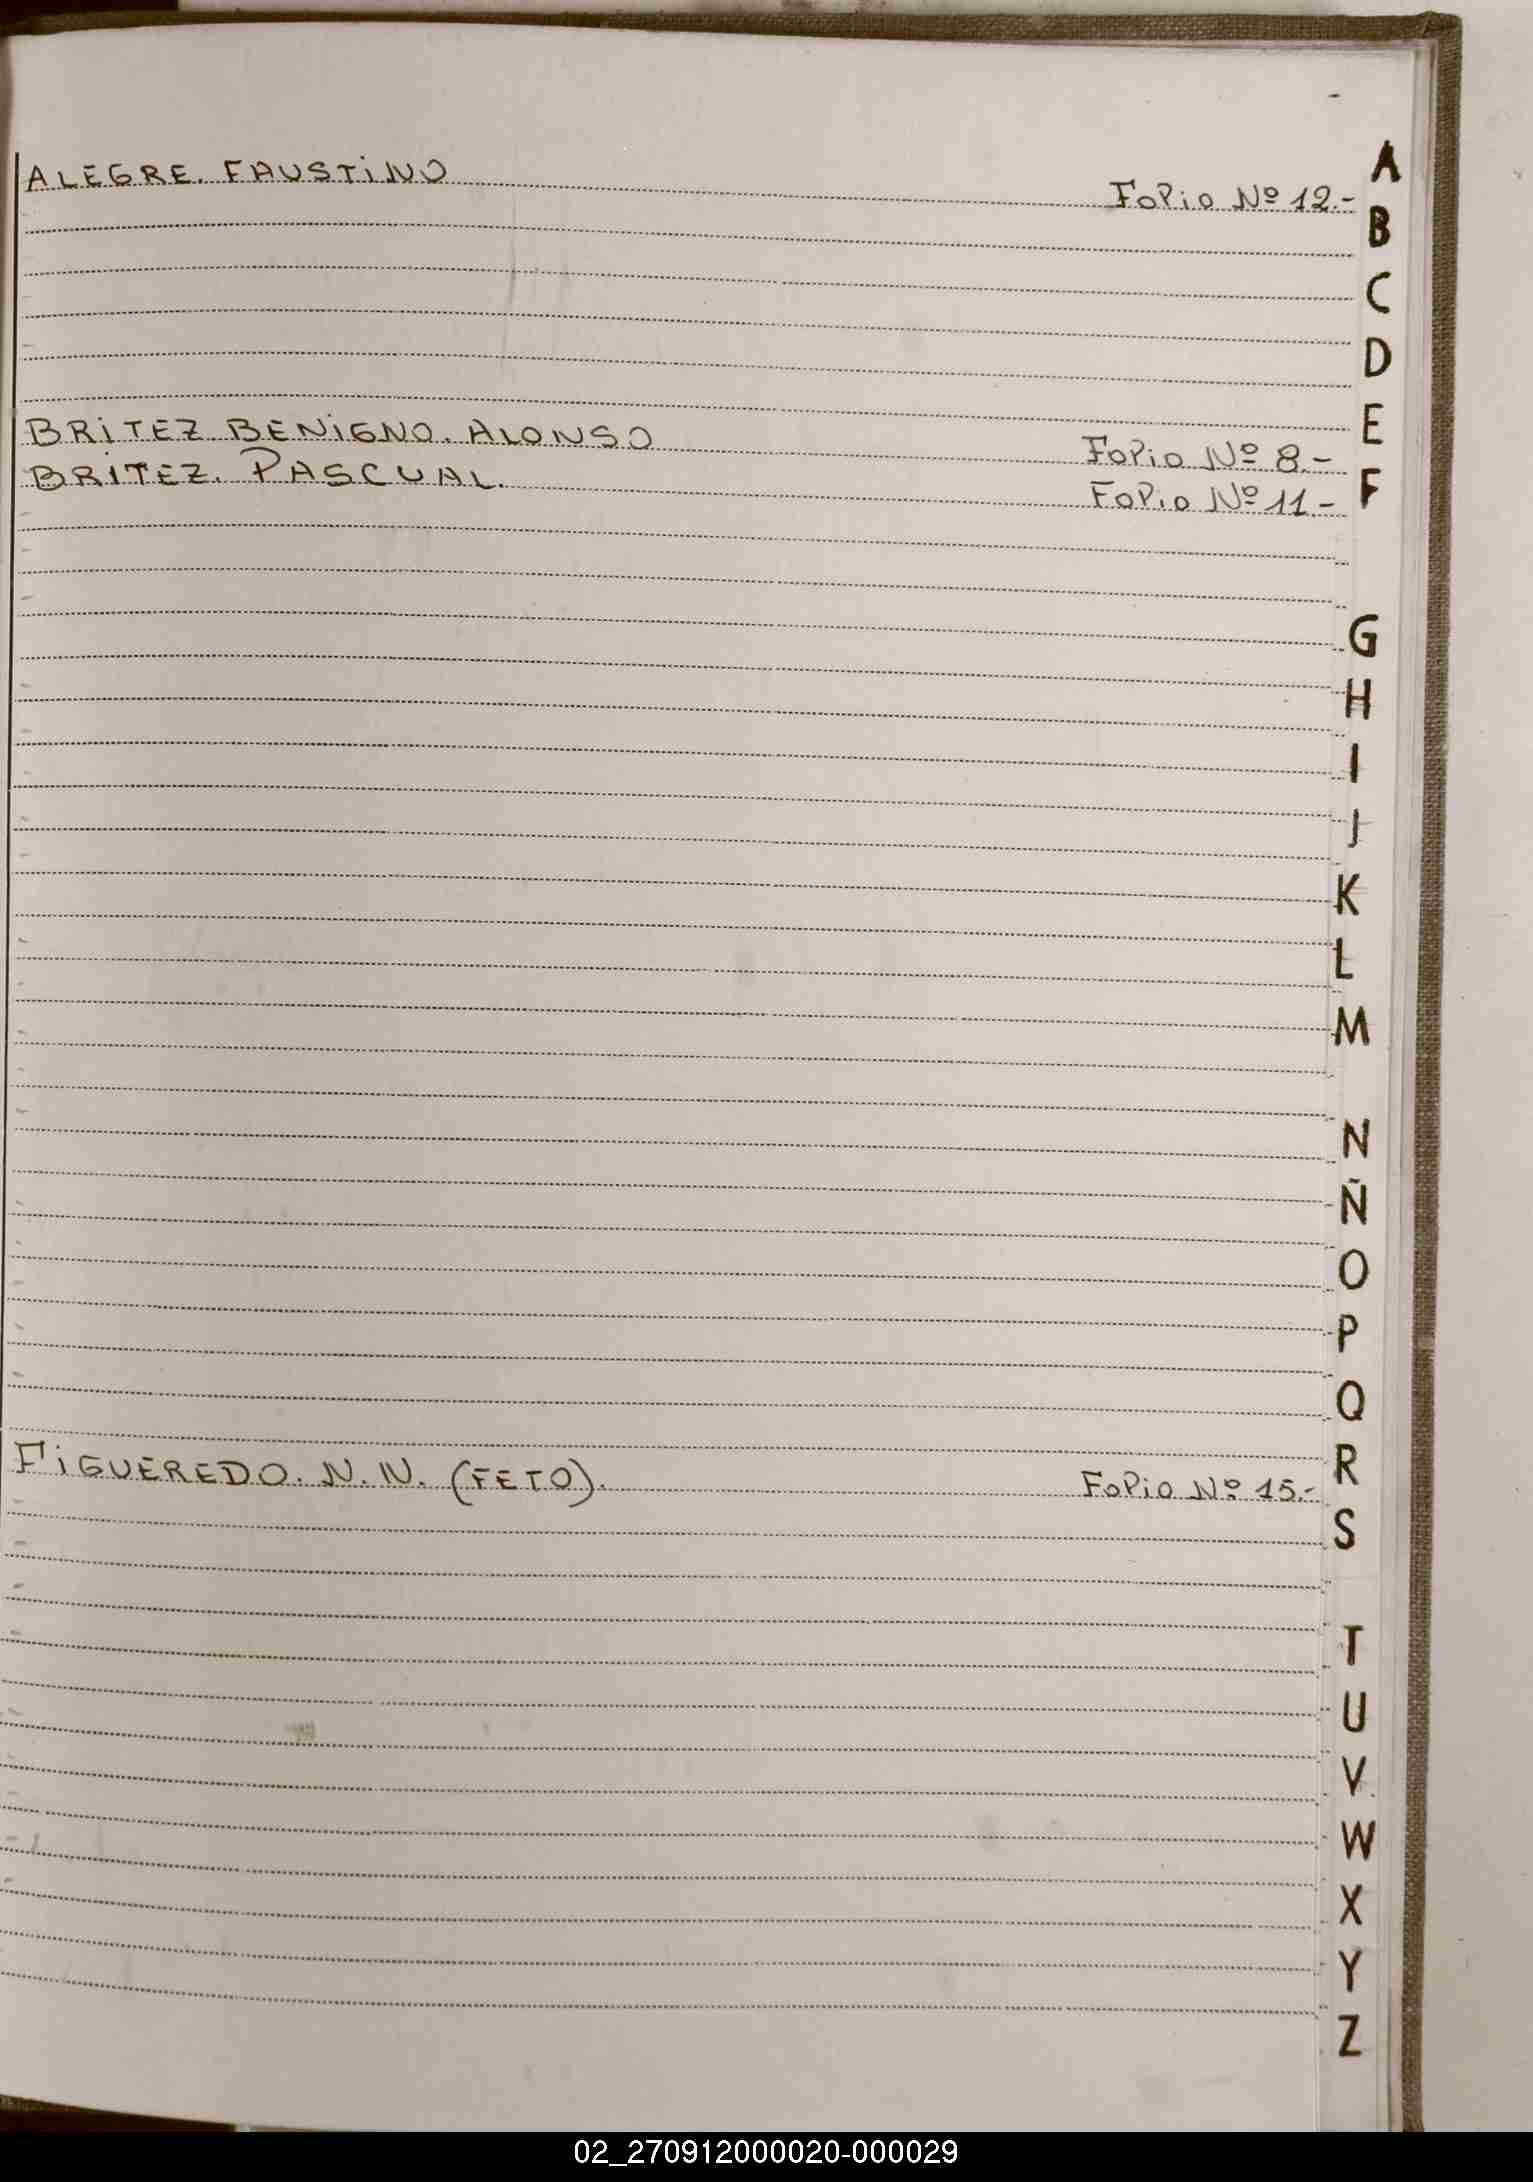 ALEGRE. FAUSTINO Folio Nº 12.-
BRITEZ BENIGNO. ALONSO Folio Nº 8.-
BRITEZ. PASCUAL. Folio Nº 11.-
FIGUEREDO. N.N. (FETO). Folio Nº 15.-
A
B
C
D
E
F
G
H
I
J
K
L
M
N
Ñ
O
P
Q
R
S
T
U
V
W
X
Y
Z
02_270912000020-000029